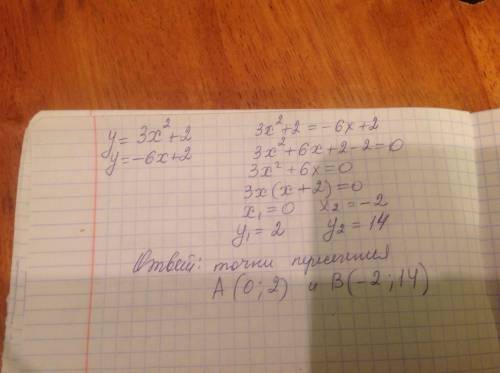 y = 3x² + 2
y = -6x + 2
3x² + 2 = -6x + 2
3x² + 6x + 2 - 2 = 0
3x² + 6x = 0
3x (x + 2) = 0
x₁ = 0 x₂ = -2
y₁ = 2 y₂ = 14
Ответ: точки пересечения
A (0 ; 2) и B (-2 ; 14)